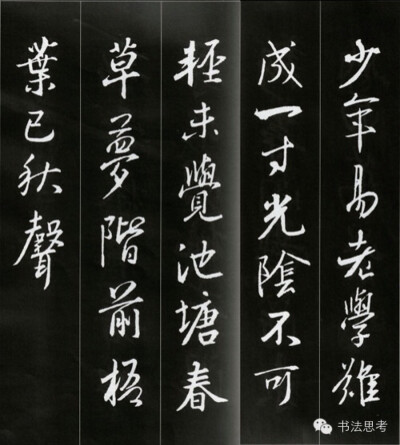 少年易老學難
成一寸光陰不可
輕未覺池塘春
草夢階前梧
葉已秋聲
书法思考